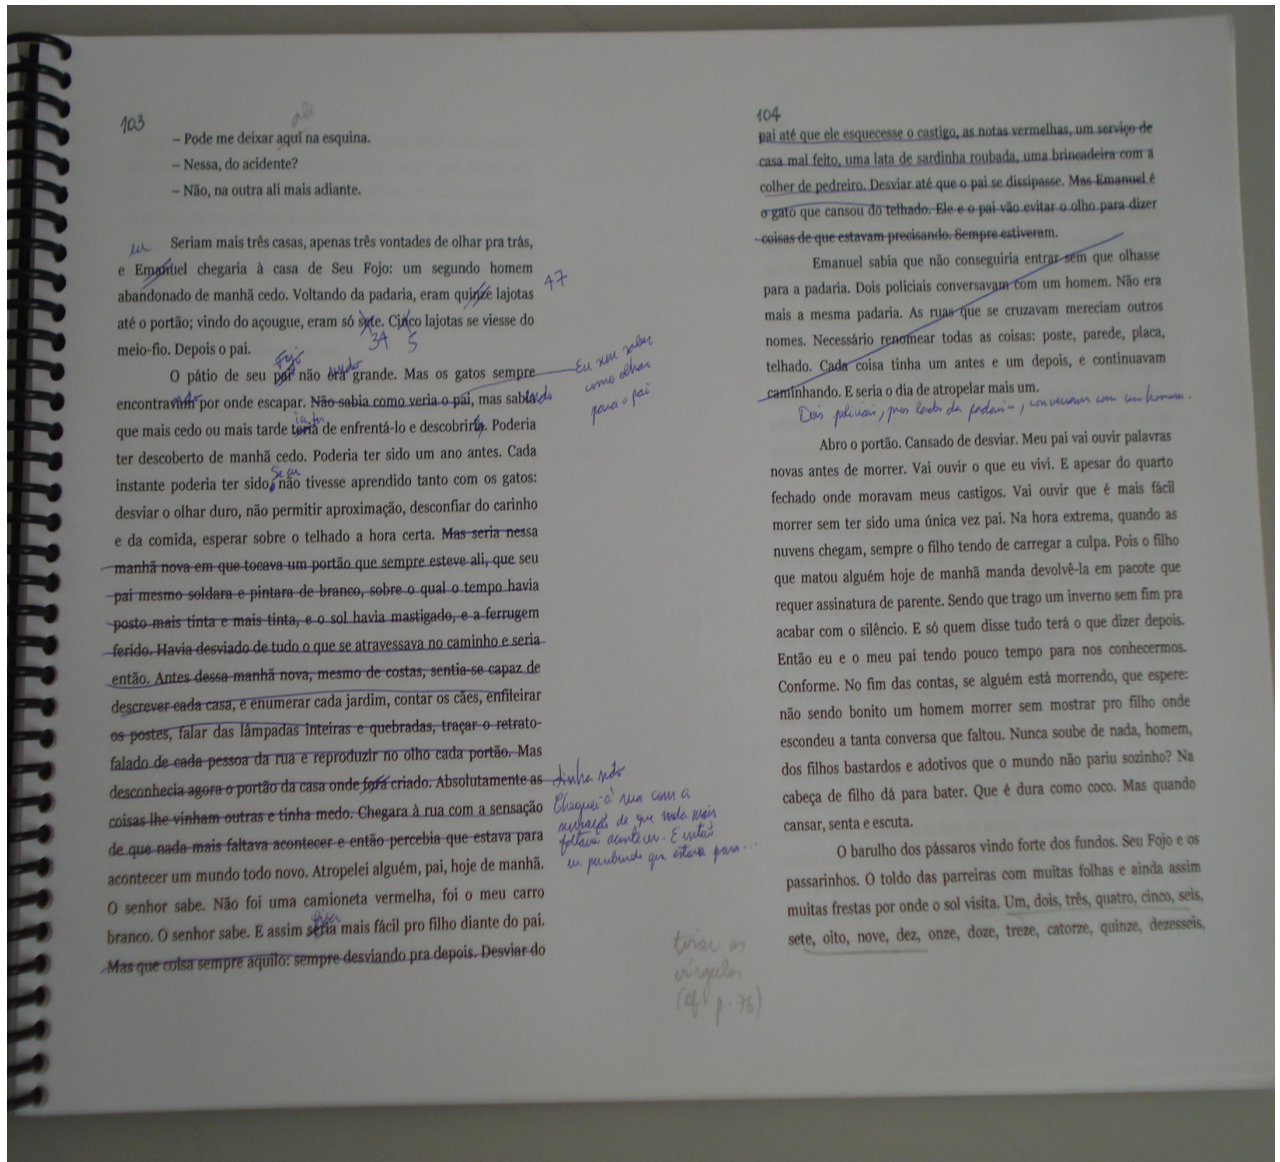 103
ali
– Pode me deixar aqui na esquina.
– Nessa, do acidente?
– Não, na outra ali mais adiante.
eu
Seriam mais três casas, apenas três vontades de olhar pra trás,
e Emanuel chegaria à casa de Seu Fojo: um segundo homem
47
abandonado de manhã cedo. Voltando da padaria, eram quinze lajotas
até o portão; vindo do açougue, eram só sete. Cinco lajotas se viesse do
34 5
meio-fio. Depois o pai.
Fojo sendo
O pátio de seu pai não era grande. Mas os gatos sempre
encontravam por onde escapar. Não sabia como veria o pai, mas sabia
Eu sem saber
como olhar
para o pai
que mais cedo ou mais tarde teria de enfrentá-lo e descobriria. Poderia
ter descoberto de manhã cedo. Poderia ter sido um ano antes. Cada
Se eu
instante poderia ter sido, não tivesse aprendido tanto com os gatos:
desviar o olhar duro, não permitir aproximação, desconfiar do carinho
e da comida, esperar sobre o telhado a hora certa. Mas seria nessa
manhã nova em que tocava um portão que sempre esteve ali, que seu
pai mesmo soldara e pintara de branco, sobre o qual o tempo havia
posto mais tinta e mais tinta, e o sol havia mastigado, e a ferrugem
ferido. Havia desviado de tudo o que se atravessava no caminho e seria
então. Antes dessa manhã nova, mesmo de costas, sentia-se capaz de
descrever cada casa, e enumerar cada jardim, contar os cães, enfileirar
os postes, falar das lâmpadas inteiras e quebradas, traçar o retrato-
falado de cada pessoa da rua e reproduzir no olho cada portão. Mas
desconhecia agora o portão da casa onde fora criado. Absolutamente as
tinha sido
coisas lhe vinham outras e tinha medo. Chegara à rua com a sensação
de que nada mais faltava acontecer e então percebia que estava para
Cheguei à rua com a
sensação de que nada mais
faltava acontecer. E então
eu percebendo que estava para...
acontecer um mundo todo novo. Atropelei alguém, pai, hoje de manhã.
O senhor sabe. Não foi uma camioneta vermelha, foi o meu carro
branco. O senhor sabe. E assim seria mais fácil pro filho diante do pai.
Mas que coisa sempre aquilo: sempre desviando pra depois. Desviar do
tirar as
vírgulas
(cf. p. 76)
104
pai até que ele esquecesse o castigo, as notas vermelhas, um serviço de
casa mal feito, uma lata de sardinha roubada, uma brincadeira com a
colher de pedreiro. Desviar até que o pai se dissipasse. Mas Emanuel é
o gato que cansou do telhado. Ele e o pai vão evitar o olho para dizer
coisas de que estavam precisando. Sempre estiveram.
Emanuel sabia que não conseguiria entrar sem que olhasse
para a padaria. Dois policiais conversavam com um homem. Não era
mais a mesma padaria. As ruas que se cruzavam mereciam outros
nomes. Necessário renomear todas as coisas: poste, parede, placa,
telhado. Cada coisa tinha um antes e um depois, e continuavam
caminhando. E seria o dia de atropelar mais um.
Dois policiais, pros lados da padaria, conversam com um homem.
Abro o portão. Cansado de desviar. Meu pai vai ouvir palavras
novas antes de morrer. Vai ouvir o que eu vivi. E apesar do quarto
fechado onde moravam meus castigos. Vai ouvir que é mais fácil
morrer sem ter sido uma única vez pai. Na hora extrema, quando as
nuvens chegam, sempre o filho tendo de carregar a culpa. Pois o filho
que matou alguém hoje de manhã manda devolvê-la em pacote que
requer assinatura de parente. Sendo que trago um inverno sem fim pra
acabar com o silêncio. E só quem disse tudo terá o que dizer depois.
Então eu e o meu pai tendo pouco tempo para nos conhecermos.
Conforme. No fim das contas, se alguém está morrendo, que espere:
não sendo bonito um homem morrer sem mostrar pro filho onde
escondeu a tanta conversa que faltou. Nunca soube de nada, homem,
dos filhos bastardos e adotivos que o mundo não pariu sozinho? Na
cabeça de filho dá para bater. Que é dura como coco. Mas quando
cansar, senta e escuta.
O barulho dos pássaros vindo forte dos fundos. Seu Fojo e os
passarinhos. O toldo das parreiras com muitas folhas e ainda assim
muitas frestas por onde o sol visita. Um, dois, três, quatro, cinco, seis,
sete, oito, nove, dez, onze, doze, treze, catorze, quinze, dezesseis,